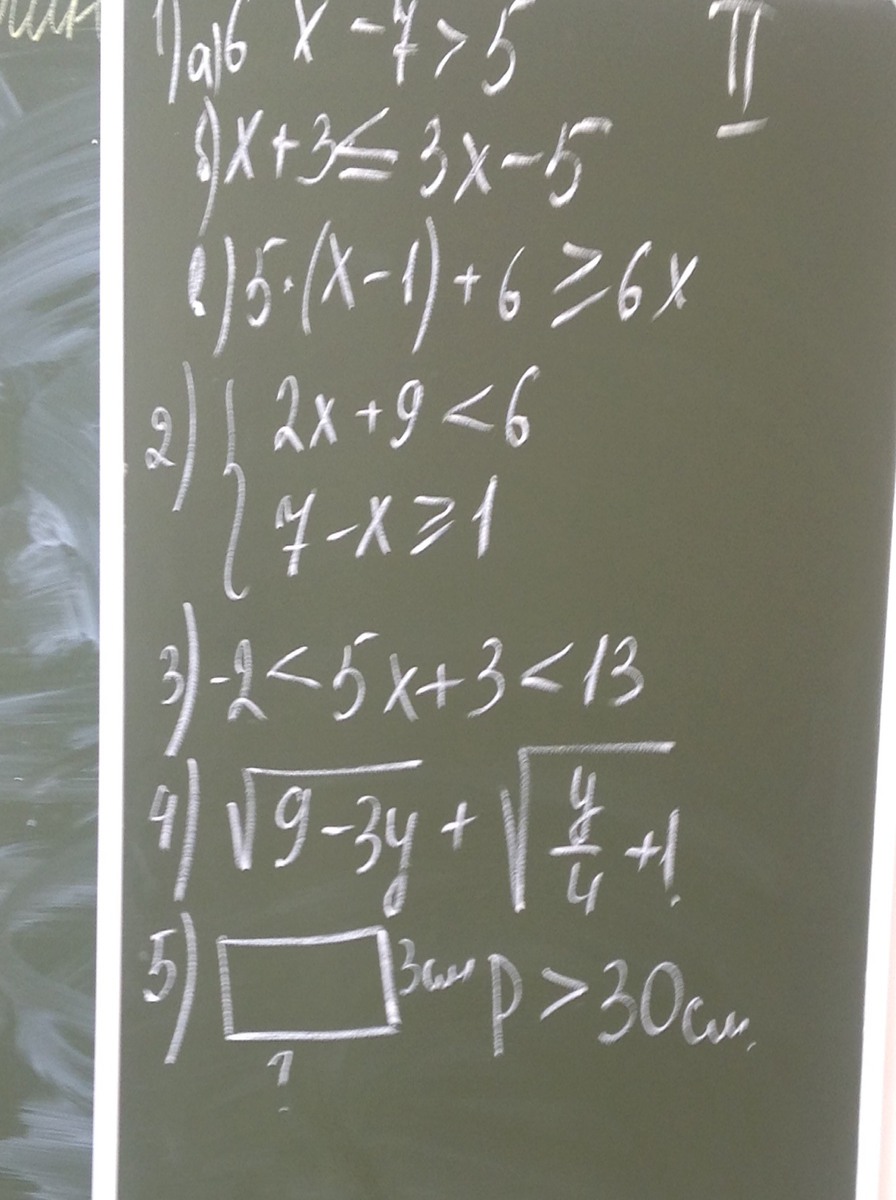 1) а) 6x - 7 > 5
II
б) x + 3 ≤ 3x - 5
в) 5·(x - 1) + 6 ≥ 6x
2) { 2x + 9 < 6
7 - x ≥ 1
3) -2 < 5x + 3 < 13
4) √(9 - 3y) + √(y/4 + 1)
5) 3см P > 30см.
?